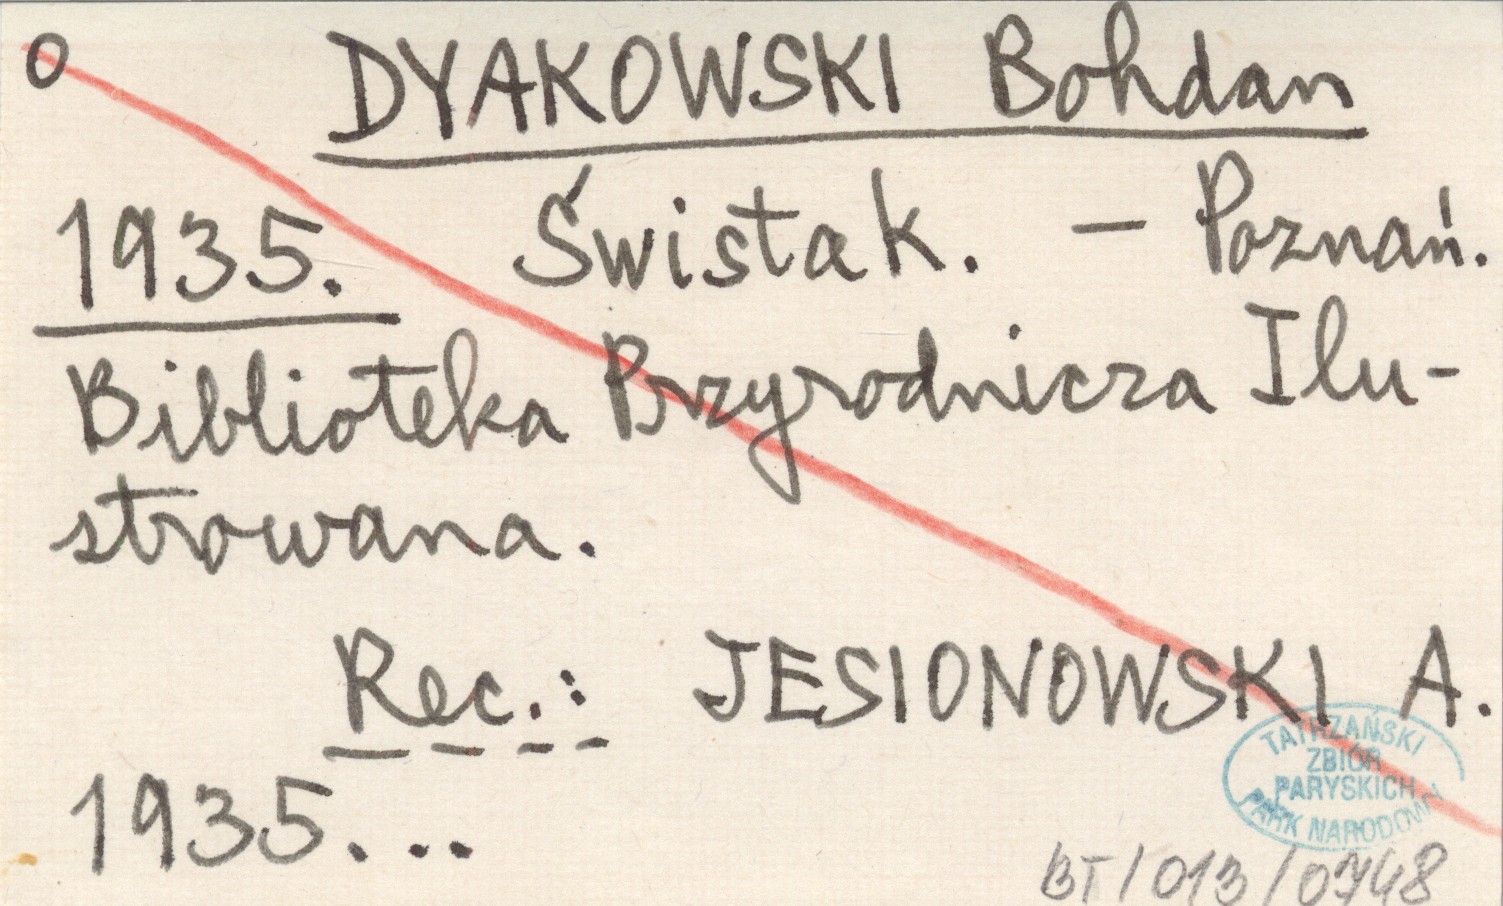 O DYAKOWSKI Bohdan
1935. Świstak. – Poznań.
Biblioteka Przyrodnicza Ilu-
strowana.
Rec.: JESIONOWSKI A.
1935...
TATRZAŃSKI
ZBIÓR
PARYSKICH
PARK NARODOWY
BT/013/0748